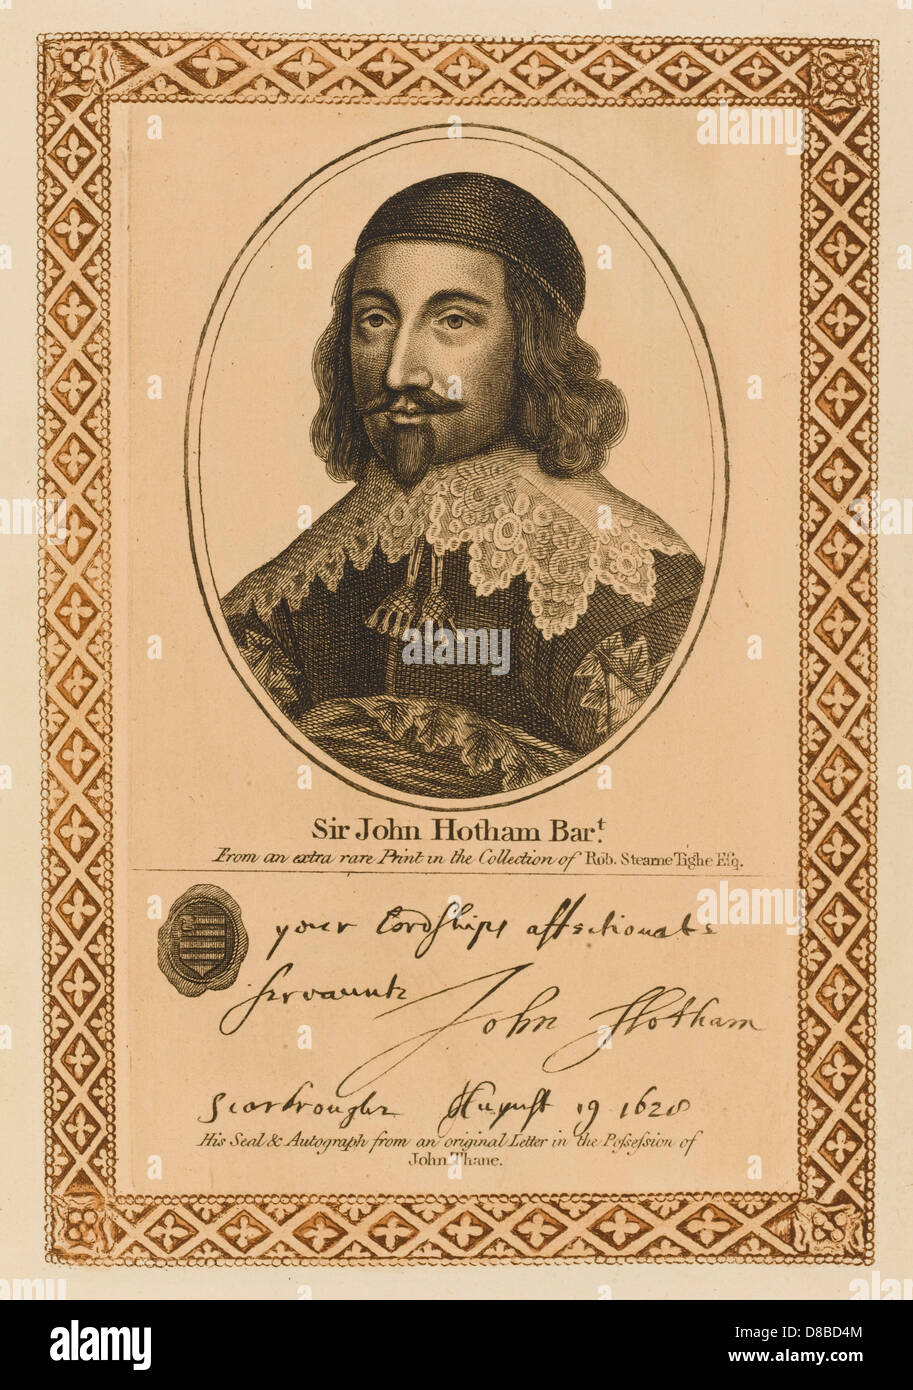 Sir John Hotham Bar.t
From an extra rare Print in the Collection of Rob. Stearne Tighe Esq.
your Lordships affectionate
servaunte John Hotham
Scarbrough August 19 1628
His Seal & Autograph from an original Letter in the Possession of
John Thane.
alamy
Image ID: D8BD4M
www.alamy.com